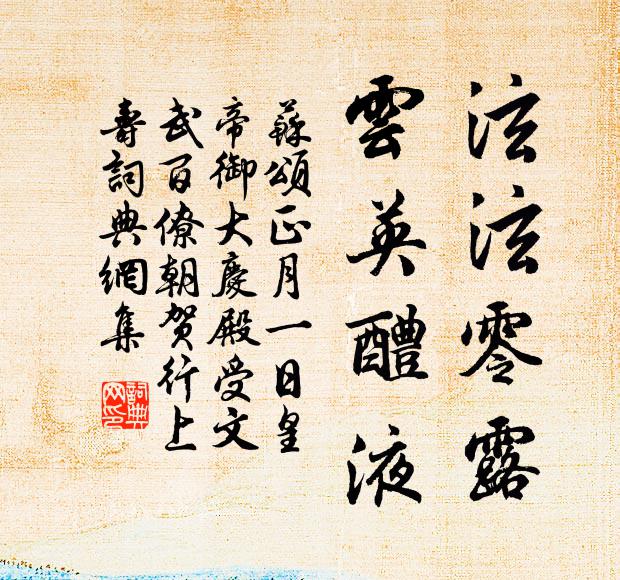 泫泫零露
雲英醴液
蘇頌正月一日皇
帝御大慶殿受文
武百僚朝贺行上
壽詞典網集
詞典
网印